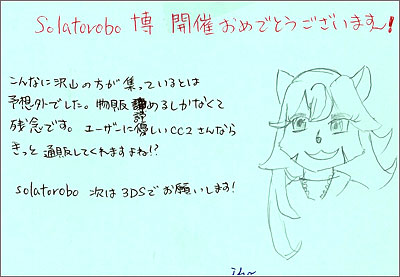 Solatorobo 博 開催おめでとうございます!
こんなに沢山の方が集っているとは
予想外でした。物販諦めるしかなくて
残念です。ユーザーに優しいCC2さんなら
きっと通販してくれますよね!?
solatorobo 次は3DSでお願いします!